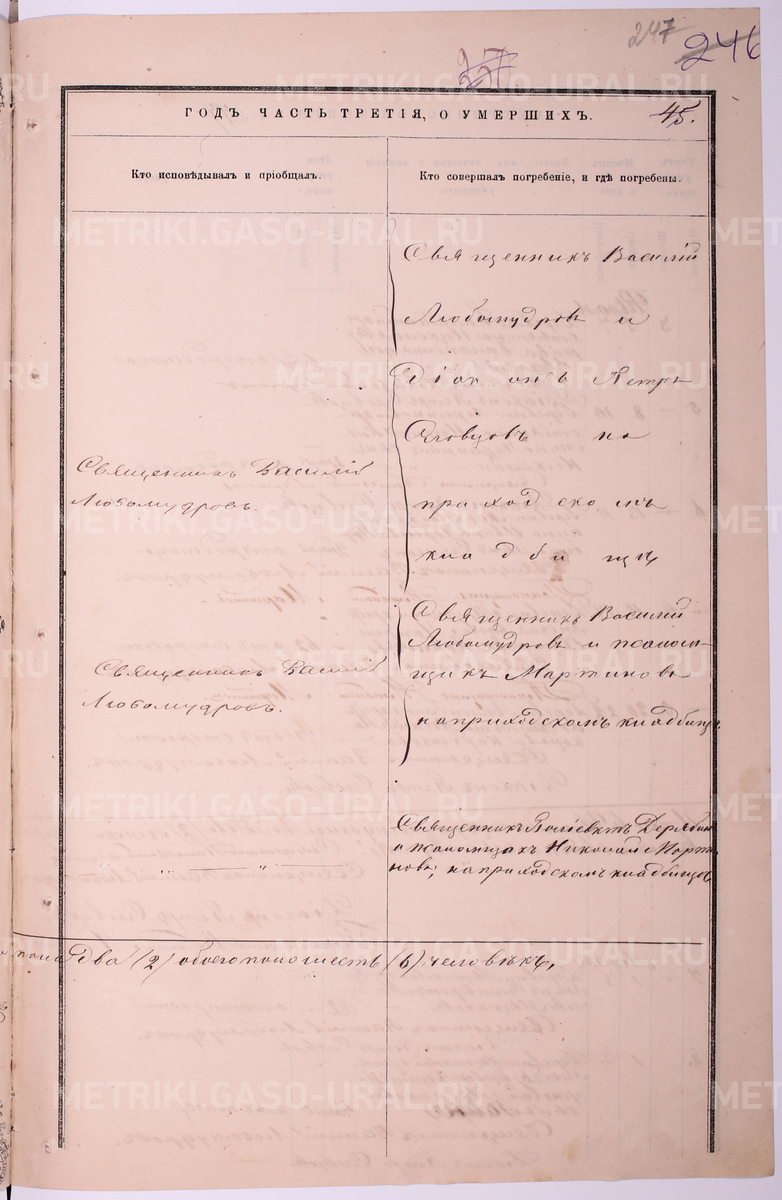 247
246
227
ГОДЪ ЧАСТЬ ТРЕТІЯ, О УМЕРШИХЪ.
45.
Кто исповѣдывалъ и пріобщалъ.
Кто совершалъ погребеніе, и гдѣ погребены.
Священникъ Василій
Любомудровъ и
діаконъ Петръ
на
приходскомъ
кладбищѣ
Священникъ Василій
Любомудровъ.
Священникъ Василій
Любомудровъ и псаломщикъ Мартиновъ
на приходскомъ кладбищѣ.
Священникъ Василій
Любомудровъ.
Священникъ Дерябинъ
и псаломщикъ Николай Мартиновъ, на приходскомъ кладбищѣ
„ „
пола два (2) обоего пола шесть (6) человѣкъ,
METRIKI.GASO-URAL.RU